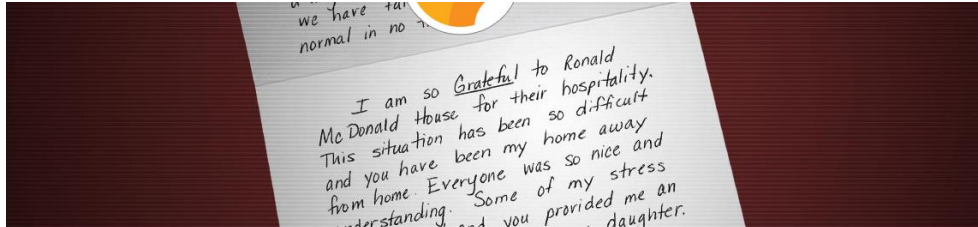 we have
normal in no
I am so Grateful to Ronald
McDonald House for their hospitality.
This situation has been so difficult
and you have been my home away
from home. Everyone was so nice and
understanding. Some of my stress
and you provided me an
daughter.